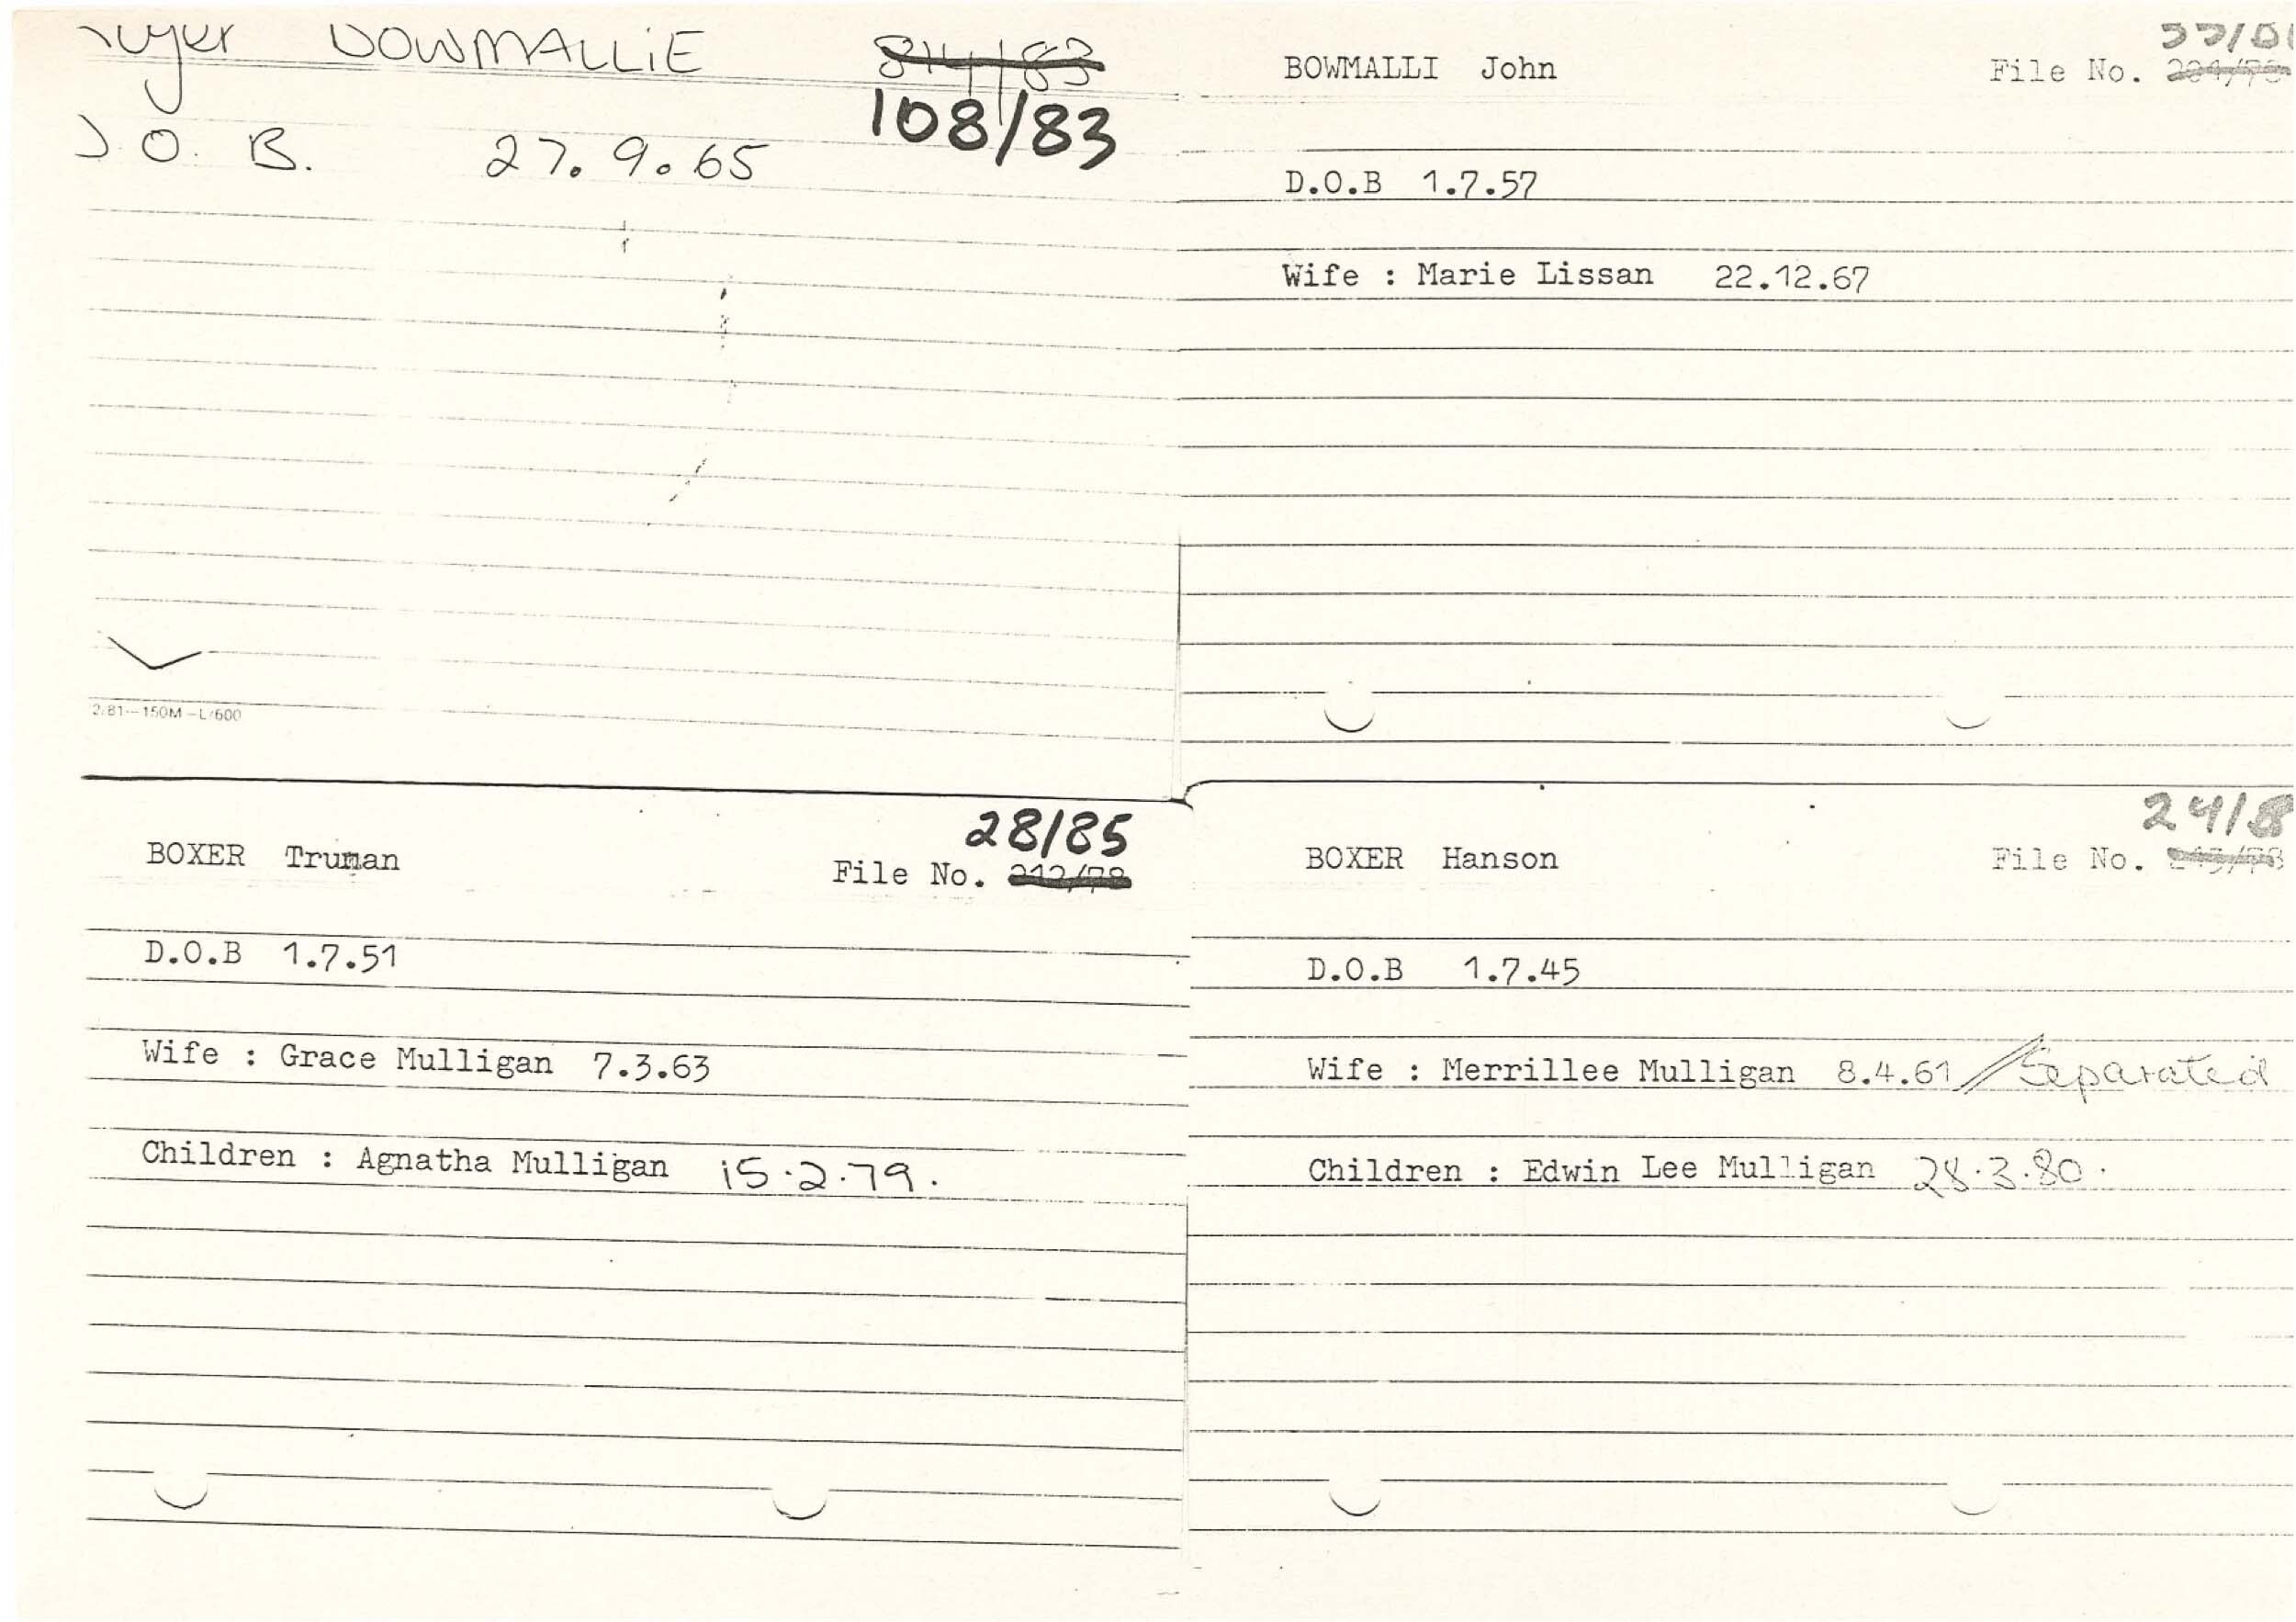 BOWMALLIE 84/83
108/83
D.O.B. 27.9.65
2/81—150M—L/600
BOWMALLI John File No.
D.O.B 1.7.57
Wife : Marie Lissan 22.12.67
28/85
BOXER Truman File No. 212/78
D.O.B 1.7.51
Wife : Grace Mulligan 7.3.63
Children : Agnatha Mulligan 15.2.79.
24/8
BOXER Hanson File No.
D.O.B 1.7.45
Wife : Merrillee Mulligan 8.4.61 // Separated
Children : Edwin Lee Mulligan 28.3.80.